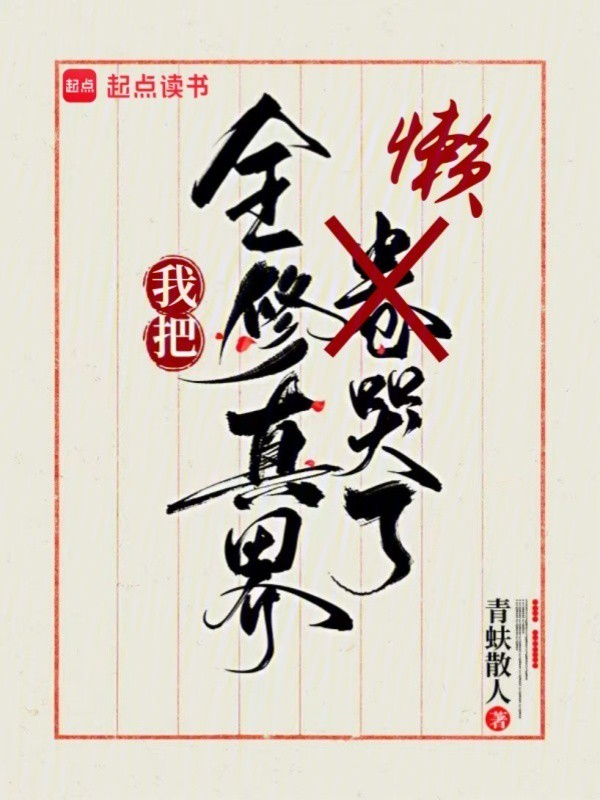 起点 起点读书
我把
全修真界
懒
卷哭了
青蚨散人 著